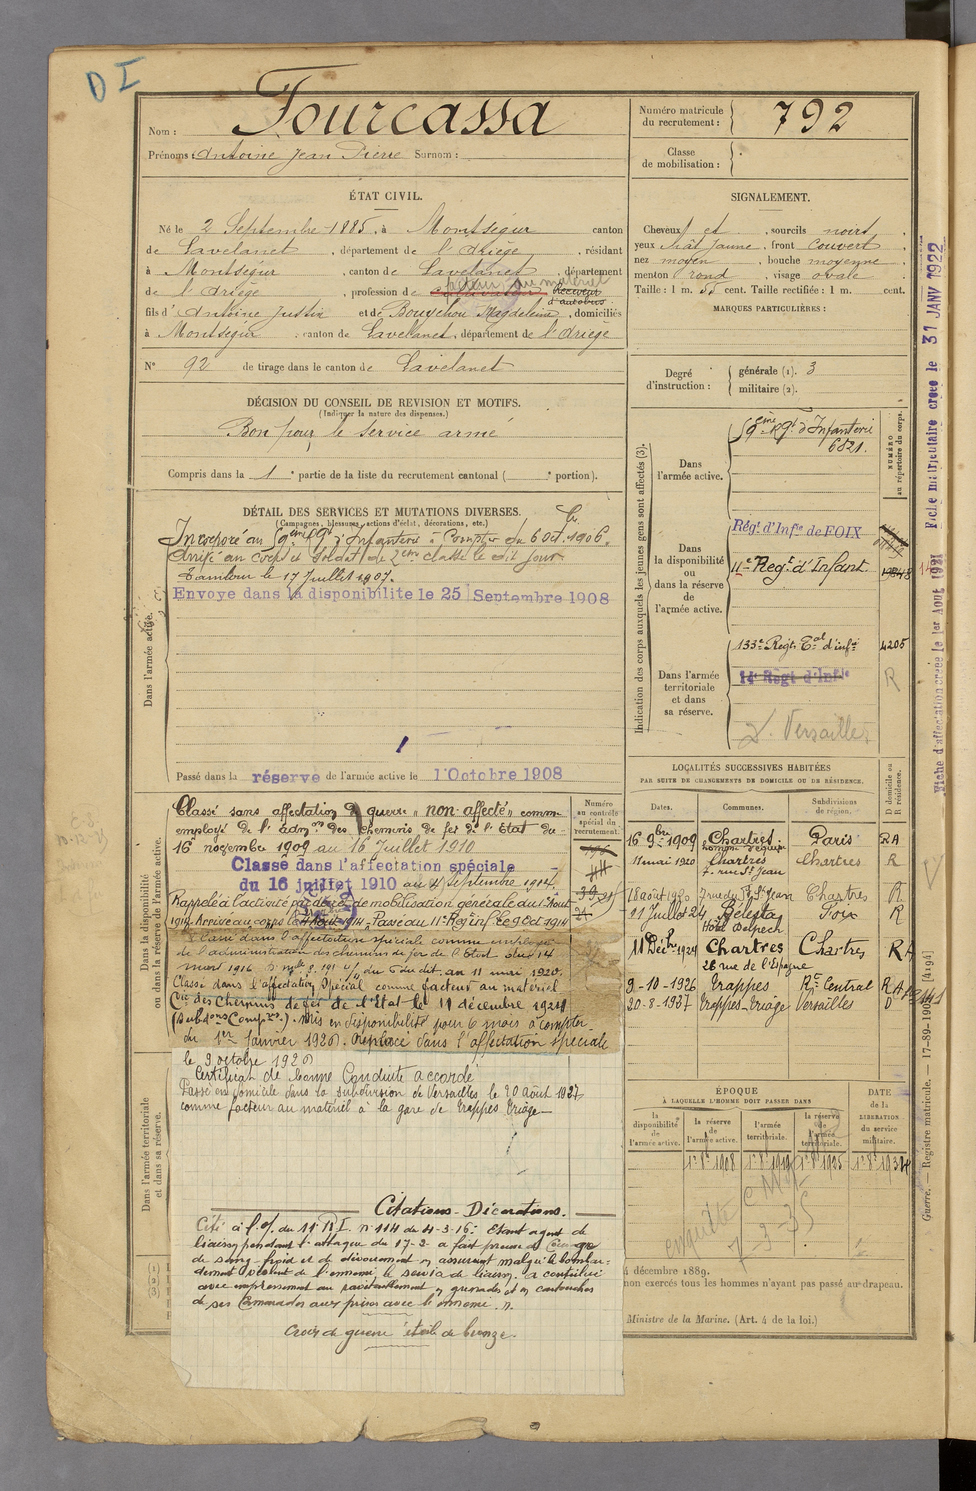 D I
Nom : Fourcassa
Prénoms : Antoine Jean Pierre Surnom :
Numéro matricule
du recrutement : 792
Classe
de mobilisation :
ÉTAT CIVIL.
Né le 2 Septembre 1885, à Montségur canton
de Lavelanet, département de l'Ariège, résidant
à Montségur, canton de Lavelanet, département
de l'Ariège, profession de cultivateur
fils d'Antoine Justin et de Bouychou Magdeleine, domiciliés
à Montségur canton de Lavelanet, département de l'Ariège
N° 92 de tirage dans le canton de Lavelanet
SIGNALEMENT.
Cheveux et sourcils noirs
yeux chât jaune, front couvert
nez moyen, bouche moyenne
menton rond, visage ovale
Taille : 1 m. 55 cent. Taille rectifiée : 1 m. cent.
MARQUES PARTICULIÈRES :
Degré
d'instruction :
générale (1). 3
militaire (2).
DÉCISION DU CONSEIL DE REVISION ET MOTIFS.
(Indiquer la nature des dispenses.)
Bon pour le service armé
Compris dans la 1e partie de la liste du recrutement cantonal ( e portion).
DÉTAIL DES SERVICES ET MUTATIONS DIVERSES.
(Campagnes, blessures, actions d'éclat, décorations, etc.)
Incorporé au 59ème Rgt d'Infanterie à Compter du 6 Oct. 1906.
Arrivé au corps et Soldat de 2ème classe le dit jour
Tambour le 17 Juillet 1907.
Envoye dans la disponibilite le 25 Septembre 1908
Dans l'armée active.
Passé dans la réserve de l'armée active le 1 Octobre 1908
Indication des corps auxquels les jeunes gens sont affectés (3).
NUMÉRO
au répertoire du corps.
Dans
l'armée active.
59ème Rgt d'Infanterie
6821.
Dans
la disponibilité
ou
dans la réserve
de
l'armée active.
Régt d'Infie de FOIX
11e Regt d'Infant
Dans l'armée
territoriale
et dans
sa réserve.
133e Regt Tal d'infie
4205
14e Regt d'Infie
R
Versailles
LOCALITÉS SUCCESSIVES HABITÉES
PAR SUITE DE CHANGEMENTS DE DOMICILE OU DE RÉSIDENCE.
Dates. Communes. Subdivisions
de région.
D domicile ou
R résidence.
16 9bre 1909 Chartres Paris RA
11 mai 1920 Chartres Chartres R
7. rue St Jean
18 août 1920 7 rue du Fg St Jean Chartres R
11 Juillet 24 Belesta Foix R
Hôtel Delpech
11 Décbre 1924 Chartres Chartres RA
26 rue de l'Epargne
9-10-1926 Trappes Rt Central RA
20-8-1937 Trappes-Triage Versailles D
Dans la disponibilité
ou dans la réserve de l'armée active.
Numéro
au contrôle
spécial du
recrutement.
Classé sans affectation de guerre "non-affecté" comme
employé de l'admon des chemins de fer de l'Etat du
16 novembre 1909 au 16 Juillet 1910
Classé dans l'affectation spéciale
du 16 juillet 1910 au 4 Septembre 1914
Rappelé à l'activité par décret de mobilisation générale du 1er Août
1914. Arrivé au corps le 4 Août 1914. Passé au 11e Regt inf. le 9 Oct 1914
Classé dans l'affectation spéciale comme employé
de l'administration des chemins de fer de l'Etat du 14
mars 1916 au 11 mai 1920.
Classé dans l'affectation Spécial comme facteur au matériel
Cie des chemins de fer de l'Etat le 11 décembre 1924
(Subdons Compres). Mis en disponibilité pour 6 mois à compter
du 1er Janvier 1926. Replacé dans l'affectation spéciale
le 9 octobre 1926
Certificat de bonne Conduite accordé
Passé en domicile dans la subdivision de Versailles le 20 août 1937
comme facteur au matériel à la gare de Trappes Triage
Dans l'armée territoriale
et dans sa réserve.
Citations - Décorations.
Cité à l'o/ du 11e R I. n° 114 du 4-3-16: Etant agent de
liaison pendant l'attaque du 17-2- a fait preuve de courage
de sang-froid et de dévouement en assurant malgré le bombar-
dement violent de l'ennemi le service de liaison, a contribué
avec empressement au ravitaillement en grenades et en cartouches
de ses Camarades aux prises avec l'ennemi. ".
Croix de guerre étoile de bronze.
ÉPOQUE
À LAQUELLE L'HOMME DOIT PASSER DANS
la
disponibilité
de
l'armée active.
la réserve
de
l'armée active.
l'armée
territoriale.
la réserve
de
l'armée
territoriale.
DATE
de la
LIBÉRATION
du service
militaire.
1er 8bre 1908 1er 8bre 1919 1er 8bre 1925 1er 8bre 1934
enquête
7-3-35
4 décembre 1889.
non exercés tous les hommes n'ayant pas passé au drapeau.
Ministre de la Marine. (Art. 4 de la loi.)
Guerre. — Registre matricule. — 17-89-1902. [4194]
Fiche d'affectation creée le 1er Aout 1921
Fiche militrcutaire creee le 31 JANV 1922